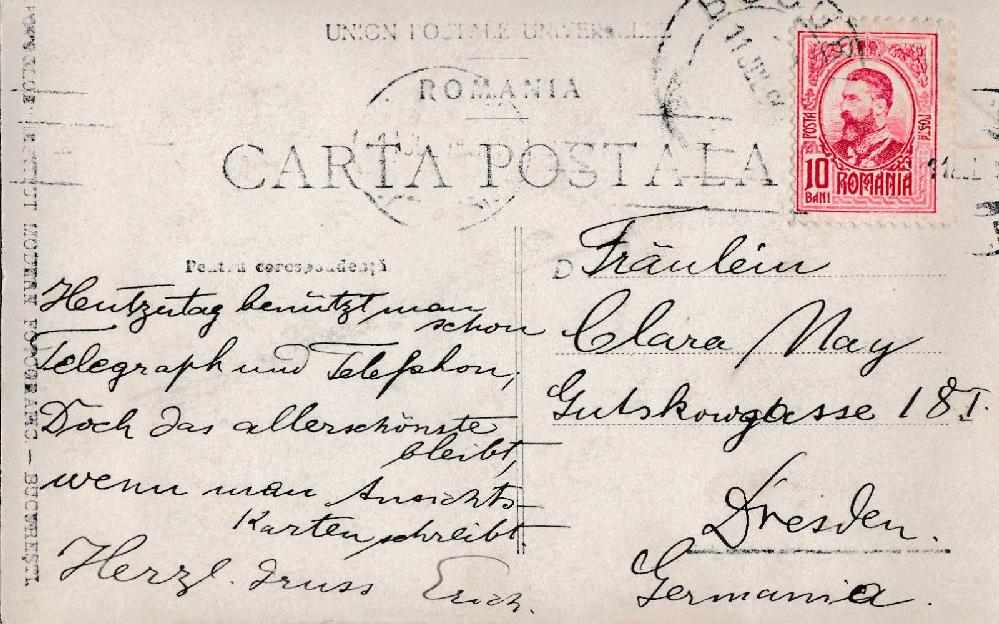 UNION POSTALE UNIVERSELLE
ROMANIA
CARTA POSTALA
POSTA
POSTA
10
BANI
ROMANIA
Pentru corespondență
Heutzutag benützt man
schon
Telegraph und Telephon,
Doch das allerschönste
bleibt,
wenn man Ansichts-
Karten schreibt.
Herzl. Gruss Erich.
D
Fräulein
Clara Nay
Gutskowgasse 18 I.
Dresden.
Germania.
MODERN FOTOGRAFIC — BUCUREȘTI